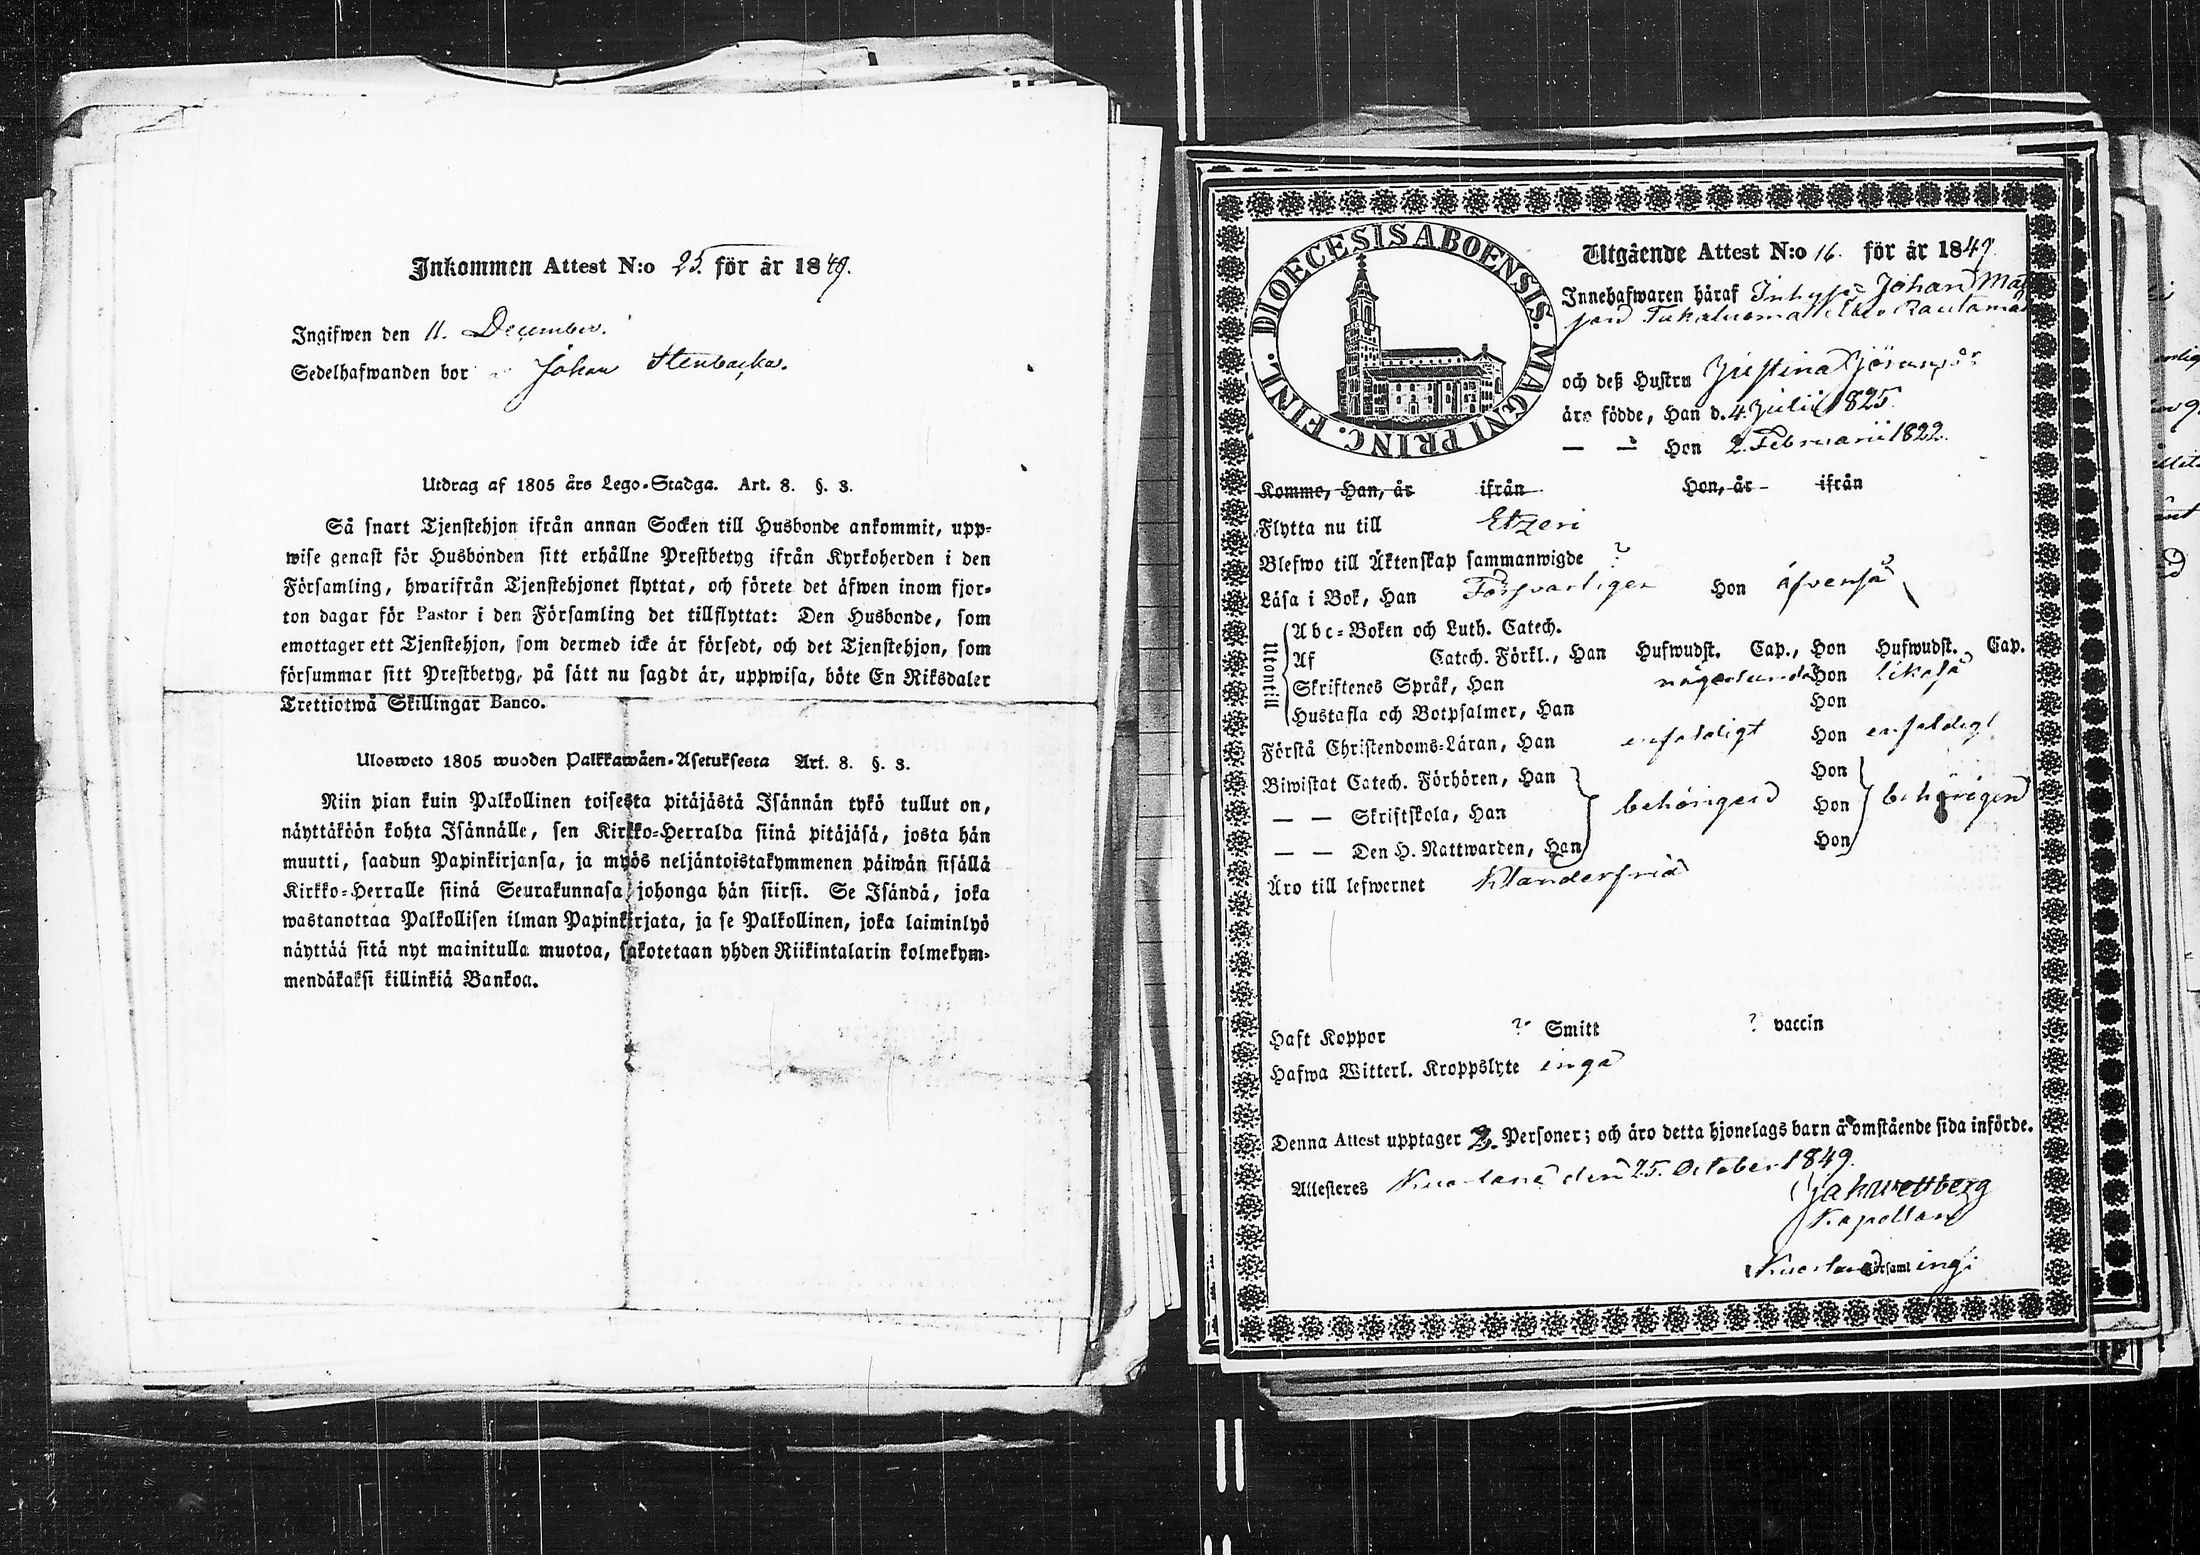 Inkommen Attest N:o 25. för år 1849.
Ingifwen den 11. December.
Sedelhafwanden bor Johan Stenbacka.
Utdrag af 1805 års Lego-Stadga. Art. 8. §. 3.
Så snart Tjenstehjon ifrån annan Socken till Husbonde ankommit, upp-
wise genast för Husbonden sitt erhållne Prestbetyg ifrån Kyrkoherden i den
Församling, hwarifrån Tjenstehjonet flyttat, och förete det äfwen inom fjor-
ton dagar för Pastor i den Församling det tillflyttat: Den Husbonde, som
emottager ett Tjenstehjon, som dermed icke är försedt, och det Tjenstehjon, som
försummar sitt Prestbetyg, på sätt nu sagdt är, uppwisa, böte En Riksdaler
Trettiotwå Skillingar Banco.
Ulosweto 1805 wuoden Palkkawäen-Asetuksesta Art. 8. §. 3.
Niin pian kuin Palkollinen toisesta pitäjästä Isännän tykö tullut on,
näyttäköön kohta Isännälle, sen Kirkko-Herralda siinä pitäjäsä, josta hän
muutti, saadun Papinkirjansa, ja myös neljäntoistakymmenen päiwän sisällä
Kirkko-Herralle siinä Seurakunnasa, johonga hän siirsi. Se Isändä, joka
wastanottaa Palkollisen ilman Papinkirjata, ja se Palkollinen, joka laiminlyö
näyttää sitä nyt mainitulla muotoa, sakotetaan yhden Riikintalarin kolmekym-
mendäkaksi killinkiä Bankoa.
DIOECESIS ABOENSIS. MAGNI PRINC. FINL.
Utgående Attest N:o 16. för år 1849.
Innehafwaren häraf Inhyses Johan Mats
son Rautama
och deß Hustru Justina Göransdr
äro födde, Han d. 4. Julii 1825.
— — Hon 2. Februarii 1822.
Komme, Han, år ifrån Hon, år ifrån
Flytta nu till Etzeri
Blefwo till Äktenskap sammanwigde ?
Läsa i Bok, Han Försvarligen Hon äfvenså
Utantill
Abc-Boken och Luth. Catech.
Af Catech. Förkl., Han Hufwudst. Cap., Hon Hufwudst. Cap.
Skriftenes Språk, Han någorlunda Hon likaså
Hustafla och Botpsalmer, Han Hon
Förstå Christendoms-Läran, Han enfaldigt Hon enfaldigt
Biwistat Catech. Förhören, Han Hon
— — Skriftskola, Han behörigen Hon behörigen
— — Den H. Nattwarden, Han Hon
Äro till lefwernet Klanderfria
Haft Koppor ? Smitt ? vaccin
Hafwa Witterl. Kroppslyte inga
Denna Attest upptager 2. Personer; och äro detta hjonelags barn å omstående sida införde.
Attesteres Kuortane den 25. October 1849.
Kapellan
Kuortane Församlingi